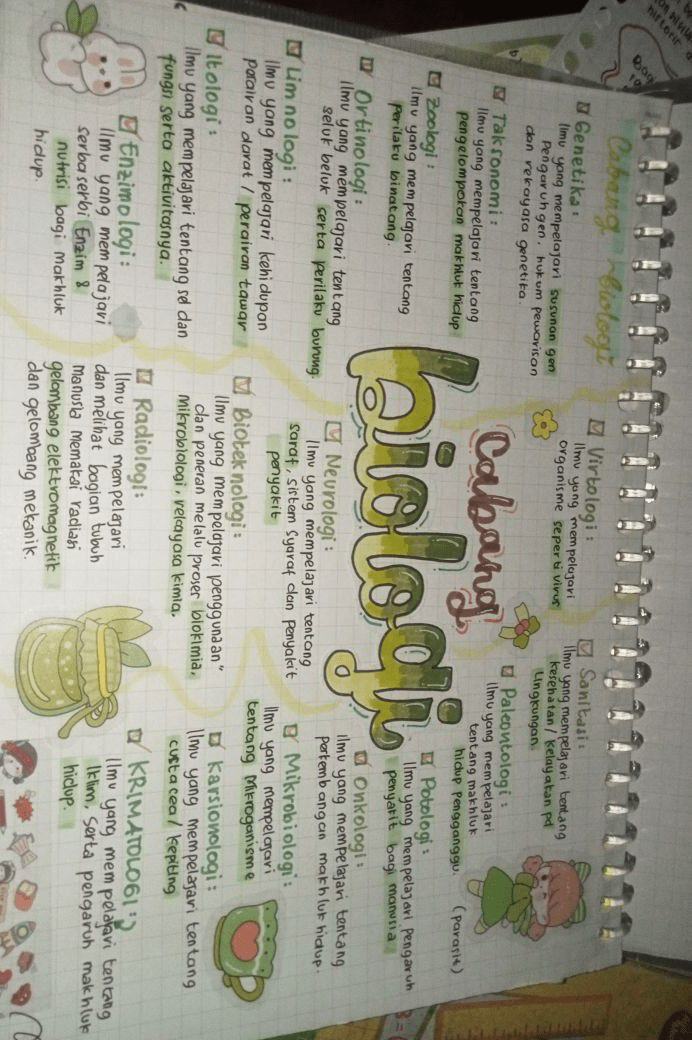 Cabang ~ Biologi
Genetika:
Ilmu yang mempelajari susunan gen
Pengaruh gen, hukum pewarisan
dan rekayasa genetika.
Taksonomi:
Ilmu yang mempelajari tentang
pengelompokan makhluk hidup
Zoologi:
Ilmu yang mempelajari tentang
perilaku binatang.
Ortinologi:
Ilmu yang mempelajari tentang
seluk beluk serta perilaku burung.
Limnologi:
Ilmu yang mempelajari kehidupan
perairan darat / perairan tawar
Itologi:
Ilmu yang mempelajari tentang sel dan
fungsi serta aktivitasnya.
Enzimologi:
Ilmu yang mempelajari
serbaserbi Enzim &
nutrisi bagi makhluk
hidup.
Cabang
biologi
Virtologi:
Ilmu yang mempelajari
organisme seperti virus
Neurologi:
Ilmu yang mempelajari tentang
saraf, sistem syaraf dan penyakit
penyakit
Bioteknologi:
Ilmu yang mempelajari penggunaan"
dan peneran melalu proses biokimia,
mikrobiologi, rekayasa kimia.
Radiologi:
Ilmu yang mempelajari
dan melihat bagian tubuh
manusia memakai radiasi
gelombang elektromagnetik
dan gelombang mekanik.
Sanitasi:
Ilmu yang mempelajari tentang
kesehatan / kelayatan pd
Lingkungan.
Paleontologi:
Ilmu yang mempelajari
tentang makhluk
hidup Pengganggu. (parasit)
Potologi:
Ilmu yang mempelajari pengaruh
penyakit bagi manusia
Onkologi:
Ilmu yang mempelajari tentang
perkembangan makhluk hidup.
Mikrobiologi:
Ilmu yang mempelajari
tentang Mikroganisme
Karsionologi:
Ilmu yang mempelajari tentang
custacea / kepiting
KRIMATOLOGI:
Ilmu yang mempelajari tentang
Iklim, serta pengaruh makhluk
hidup.